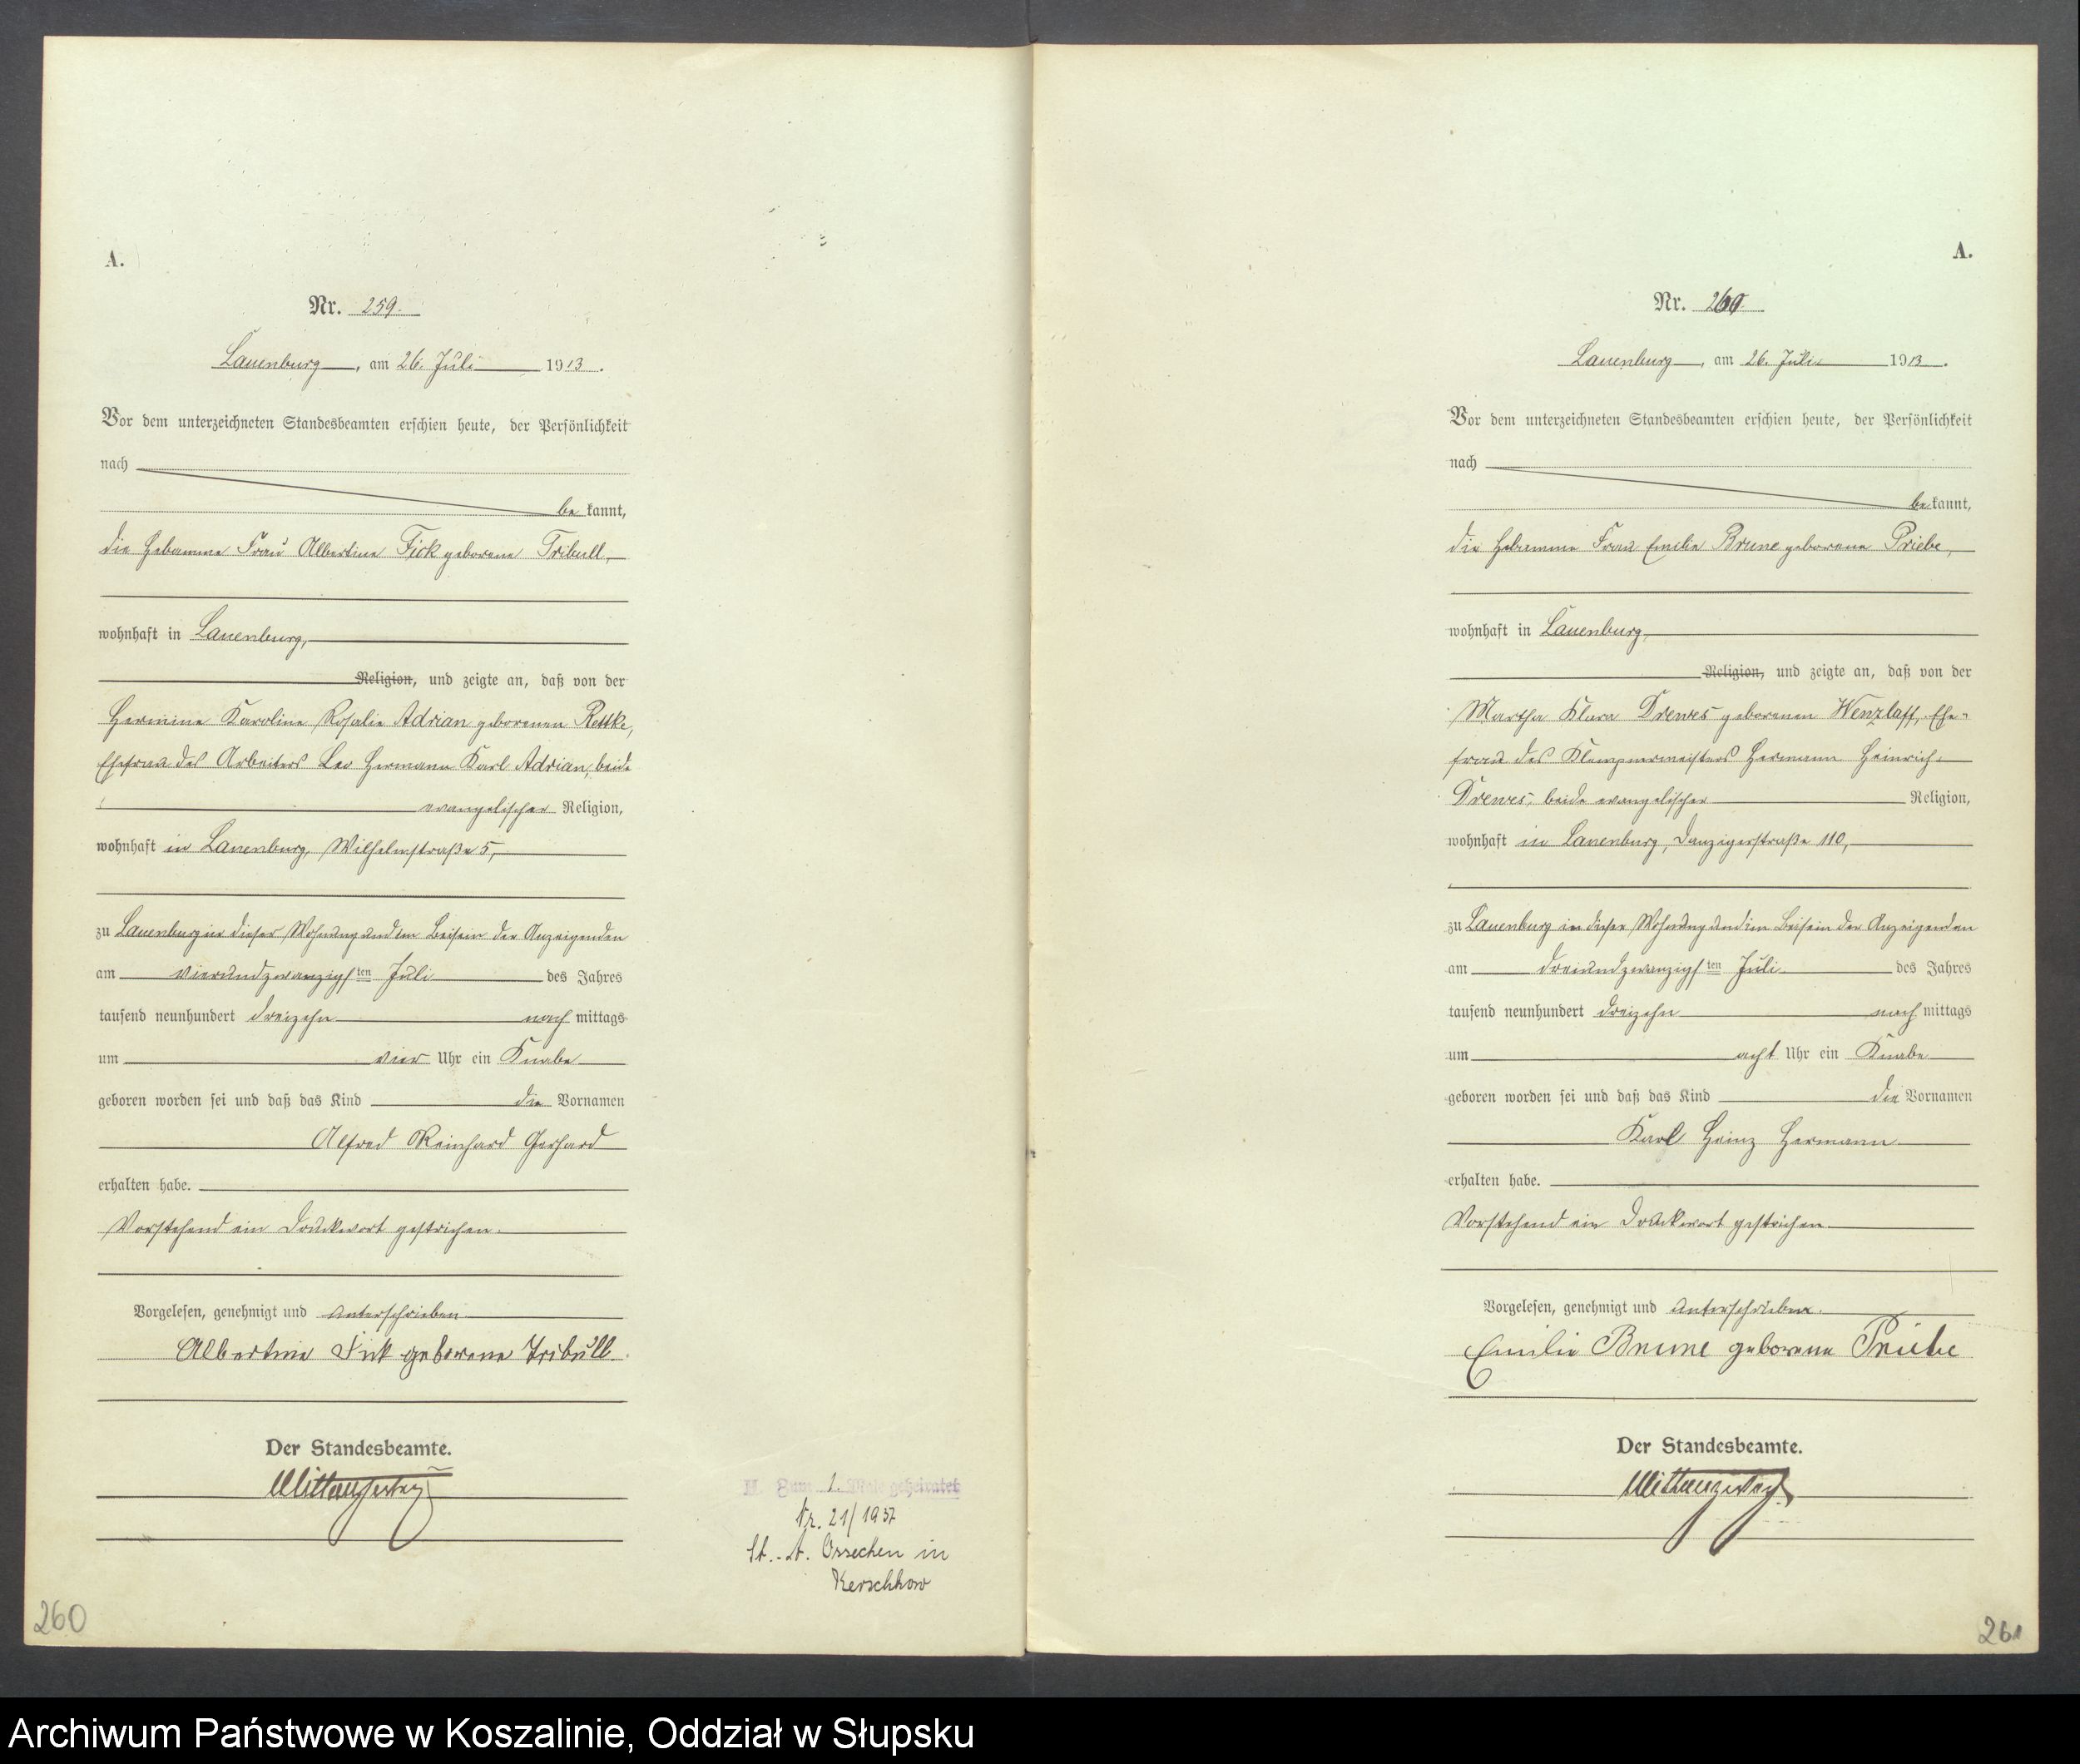 A.
Nr. 259.
Lauenburg, am 26. Juli 1913.
Vor dem unterzeichneten Standesbeamten erschien heute, der Persönlichkeit
nach
be kannt,
die Hebamme Frau Albertine Fick geborene Tribull,
wohnhaft in Lauenburg,
Religion, und zeigte an, daß von der
Hermine Karoline Rosalie Adrian geborenen Rettke,
Ehefrau des Arbeiters Leo Hermann Karl Adrian, beide
evangelischer Religion,
wohnhaft in Lauenburg, Wilhelmstraße 5,
zu Lauenburg in dieser Wohnung und im Beisein der Anzeigenden
am vierundzwanzigsten Juli des Jahres
tausend neunhundert dreizehn nach mittags
um vier Uhr ein Knabe
geboren worden sei und daß das Kind die Vornamen
Alfred Reinhard Gerhard
erhalten habe.
Vorstehend ein Druckwort gestrichen.
Vorgelesen, genehmigt und unterschrieben
Albertine Fick geborene Tribull.
Der Standesbeamte.
H. Zum 1. Male geheiratet
Nr. 21/1937
St.-A. Ossecken in
Kerschkow
260
A.
Nr. 260
Lauenburg, am 26. Juli 1913.
Vor dem unterzeichneten Standesbeamten erschien heute, der Persönlichkeit
nach
be kannt,
die Hebamme Frau Emilie Brune geborene Priebe,
wohnhaft in Lauenburg,
Religion, und zeigte an, daß von der
Martha Klara Drews geborenen Wenzlaff, Ehe-
frau des Klempnermeisters Hermann Heinrich
Drews, beide evangelischer Religion,
wohnhaft in Lauenburg, Danzigerstraße 110,
zu Lauenburg in dieser Wohnung und im Beisein der Anzeigenden
am dreiundzwanzigsten Juli des Jahres
tausend neunhundert dreizehn nach mittags
um acht Uhr ein Knabe
geboren worden sei und daß das Kind die Vornamen
Karl Heinz Hermann
erhalten habe.
Vorstehend ein Druckwort gestrichen
Vorgelesen, genehmigt und unterschrieben.
Emilie Brune geborene Priebe
Der Standesbeamte.
261
Archiwum Państwowe w Koszalinie, Oddział w Słupsku